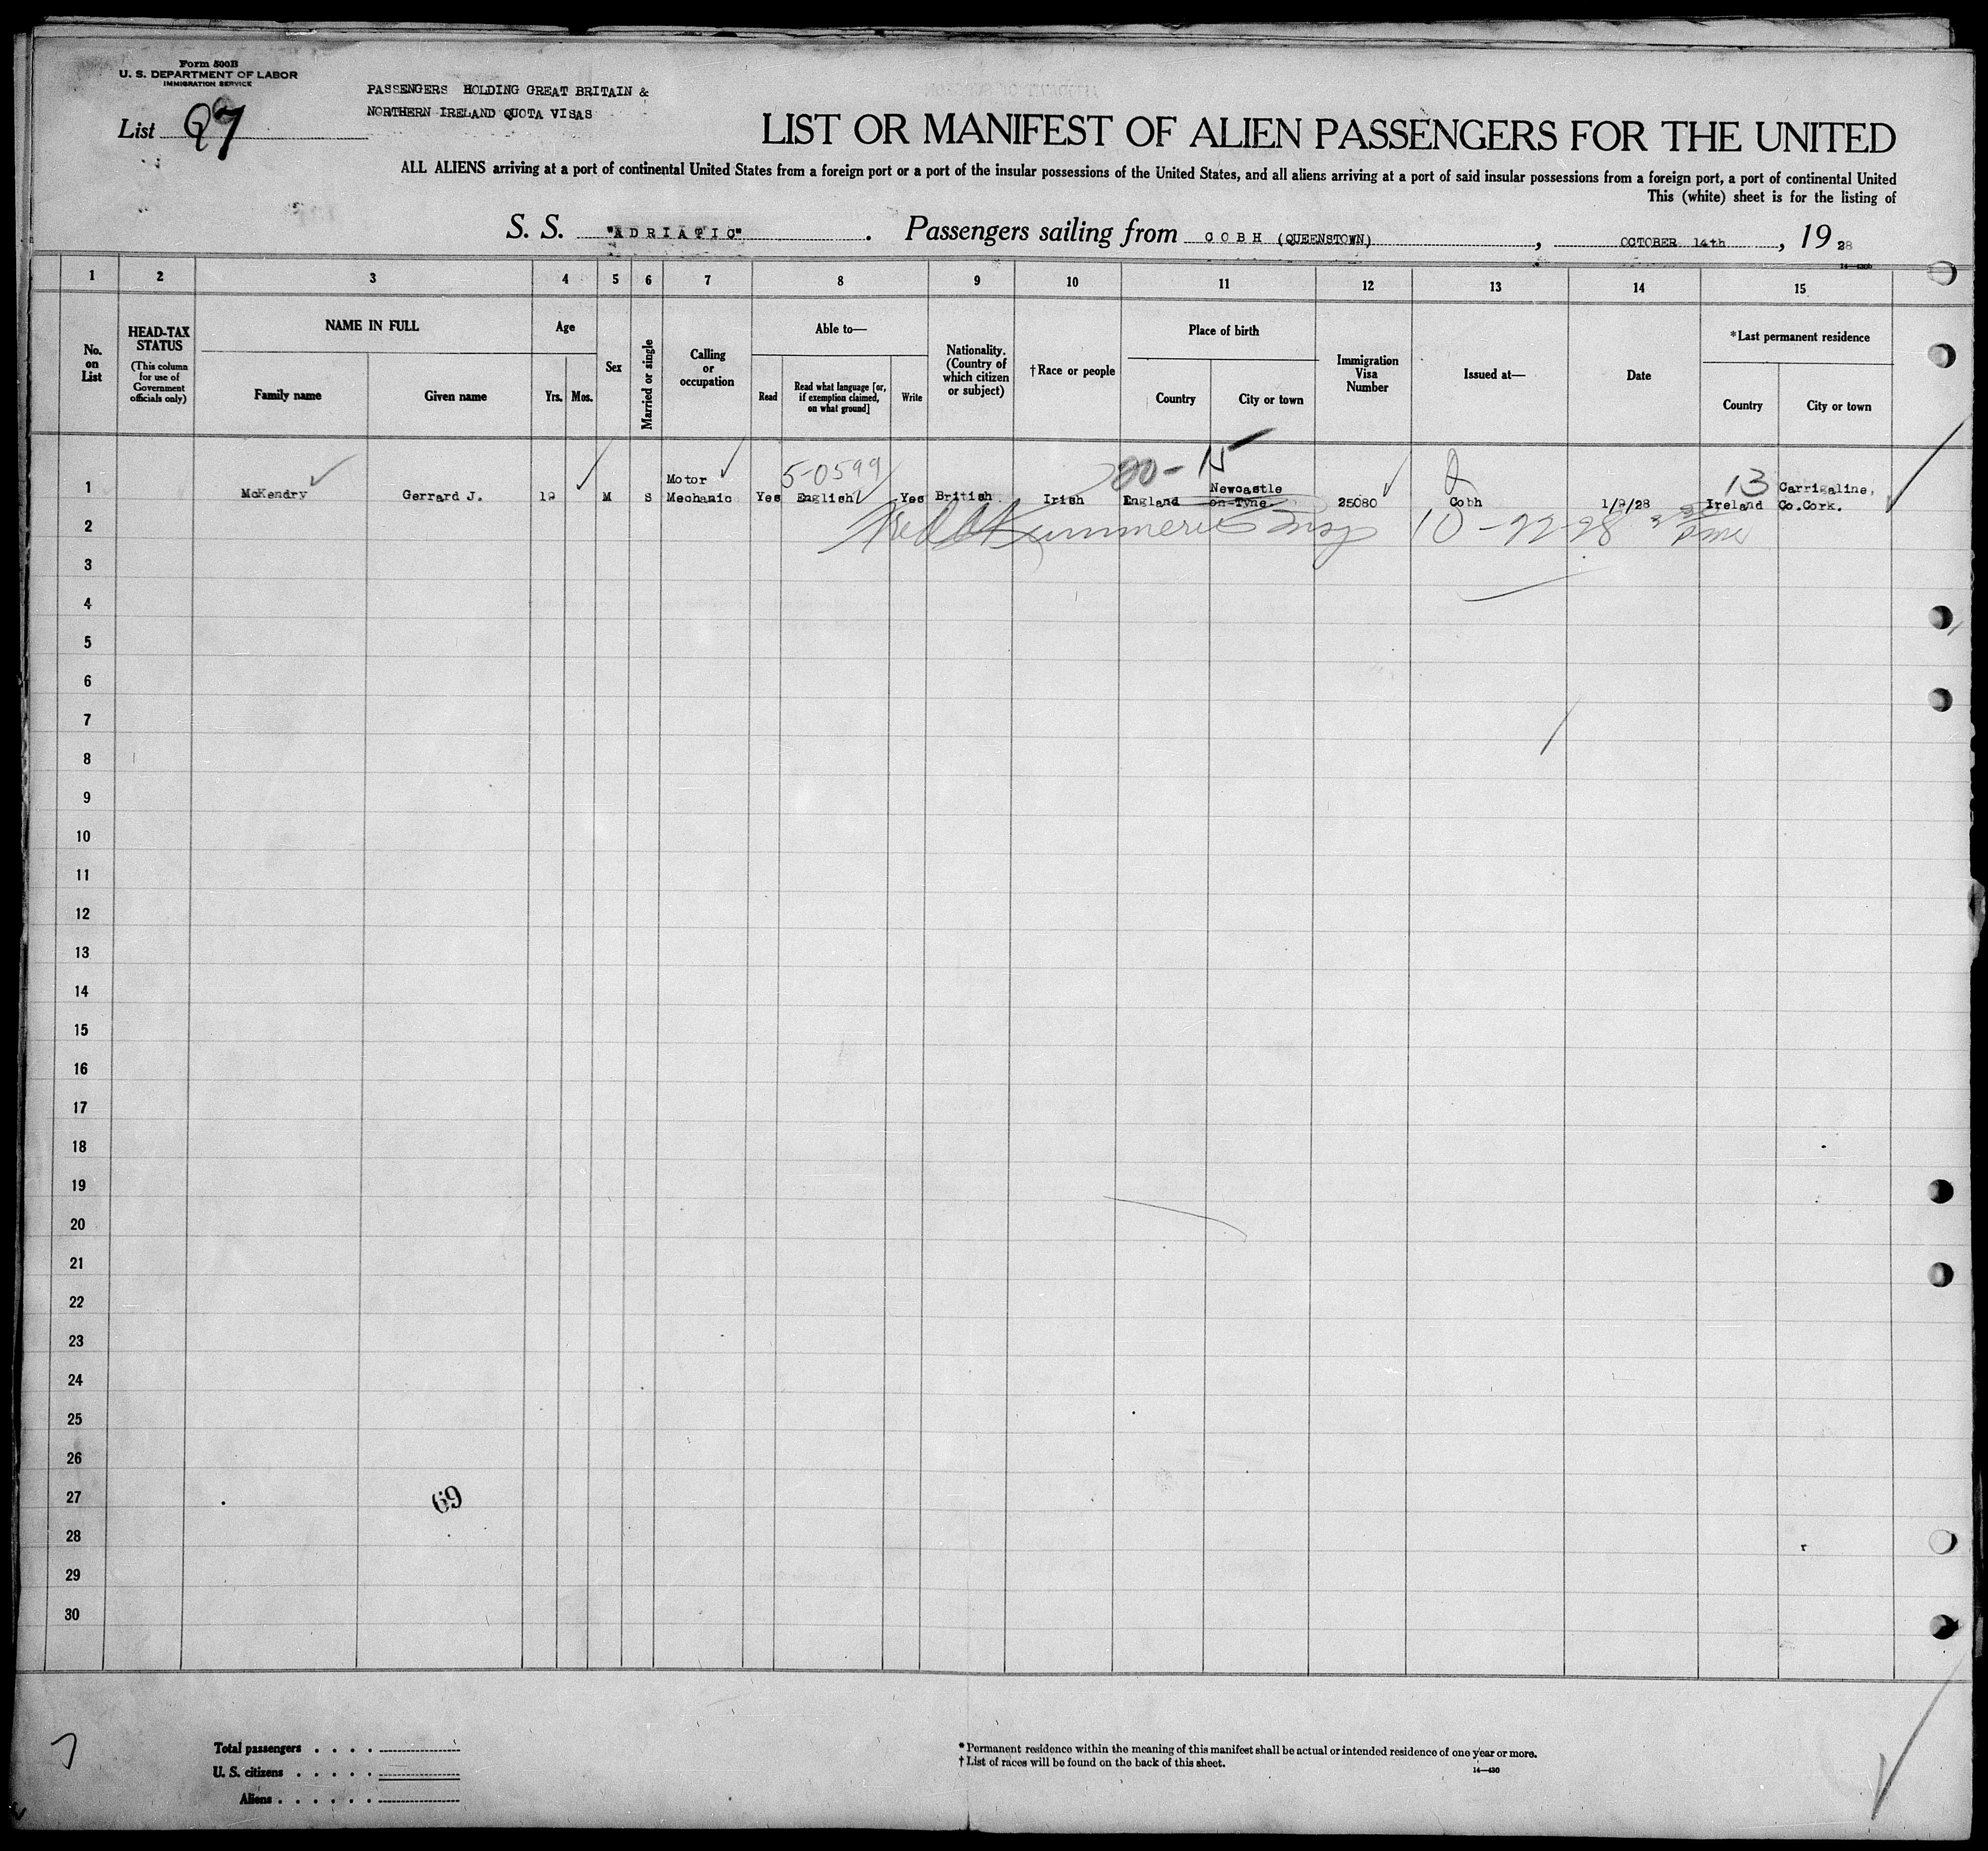 Form 500B
U. S. DEPARTMENT OF LABOR
IMMIGRATION SERVICE
List 97
PASSENGERS HOLDING GREAT BRITAIN &
NORTHERN IRELAND QUOTA VISAS
LIST OR MANIFEST OF ALIEN PASSENGERS FOR THE UNITED
ALL ALIENS arriving at a port of continental United States from a foreign port or a port of the insular possessions of the United States, and all aliens arriving at a port of said insular possessions from a foreign port, a port of continental United
This (white) sheet is for the listing of
S. S. "ADRIATIC". Passengers sailing from COBH (QUEENSTOWN), OCTOBER 14th, 1928
1 2 3 4 5 6 7 8 9 10 11 12 13 14 15
No. on List
HEAD-TAX STATUS
(This column for use of Government officials only)
NAME IN FULL
Family name
Given name
Age
Yrs. Mos.
Sex
Married or single
Calling or occupation
Able to—
Read
Read what language [or, if exemption claimed, on what ground]
Write
Nationality. (Country of which citizen or subject)
†Race or people
Place of birth
Country
City or town
Immigration Visa Number
Issued at—
Date
*Last permanent residence
Country
City or town
5-0599
13
1 McKendry Gerrard J. 19 M S Motor Mechanic Yes English Yes British Irish England Newcastle on-Tyne. 25080 Cobh 1/9/28 Ireland Carrigaline, Co.Cork.
2 10-22-28
3
4
5
6
7
8
9
10
11
12
13
14
15
16
17
18
19
20
21
22
23
24
25
26
27
69
28
29
30
Total passengers . . . .
U. S. citizens . . . . .
Aliens . . . . . .
* Permanent residence within the meaning of this manifest shall be actual or intended residence of one year or more.
† List of races will be found on the back of this sheet.
14—430